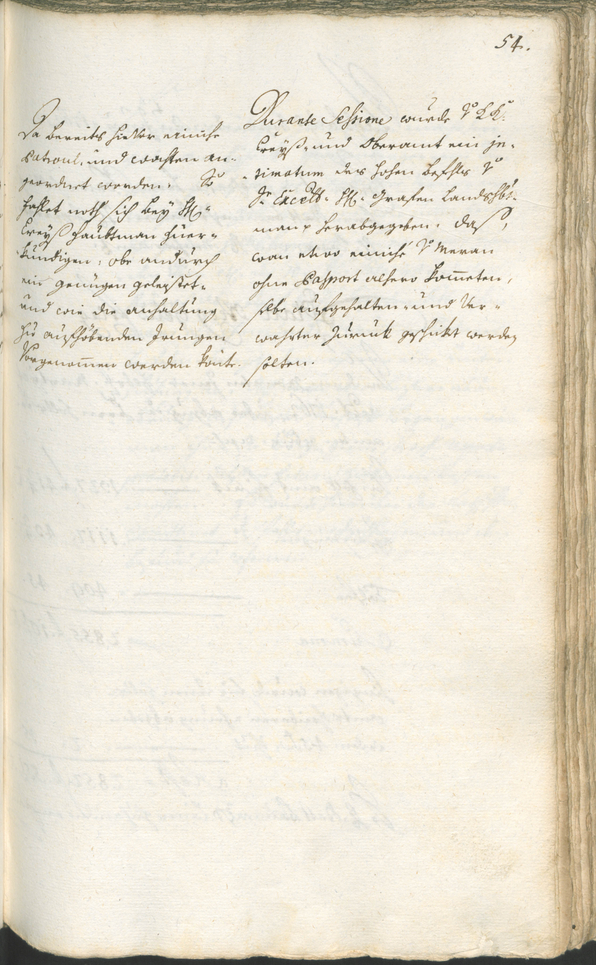 54.
Da bereits hierer einiche
Patroul, und wachten an-
geordnet worden. So
stehet noch sich bey Hℋ.
Creyß haubtman zuer-
kundigen: obe andurch
ein genügen geleistet-
und wie die anhaltung
zu aufhöbenden
vorgenommen werden könte.
Durante Sessione wurde K: K:
Creyß- und Oberamt ein in-
timatum des hohen befehls
Sr Excell: H: Grafen Landshbt-
man herabgegeben. daß,
wan etwo einiche Meran
ohne Passport alhero kommeten,
selbe aufgehalten- und ver-
wahrter zurück geschikt werden
solten.